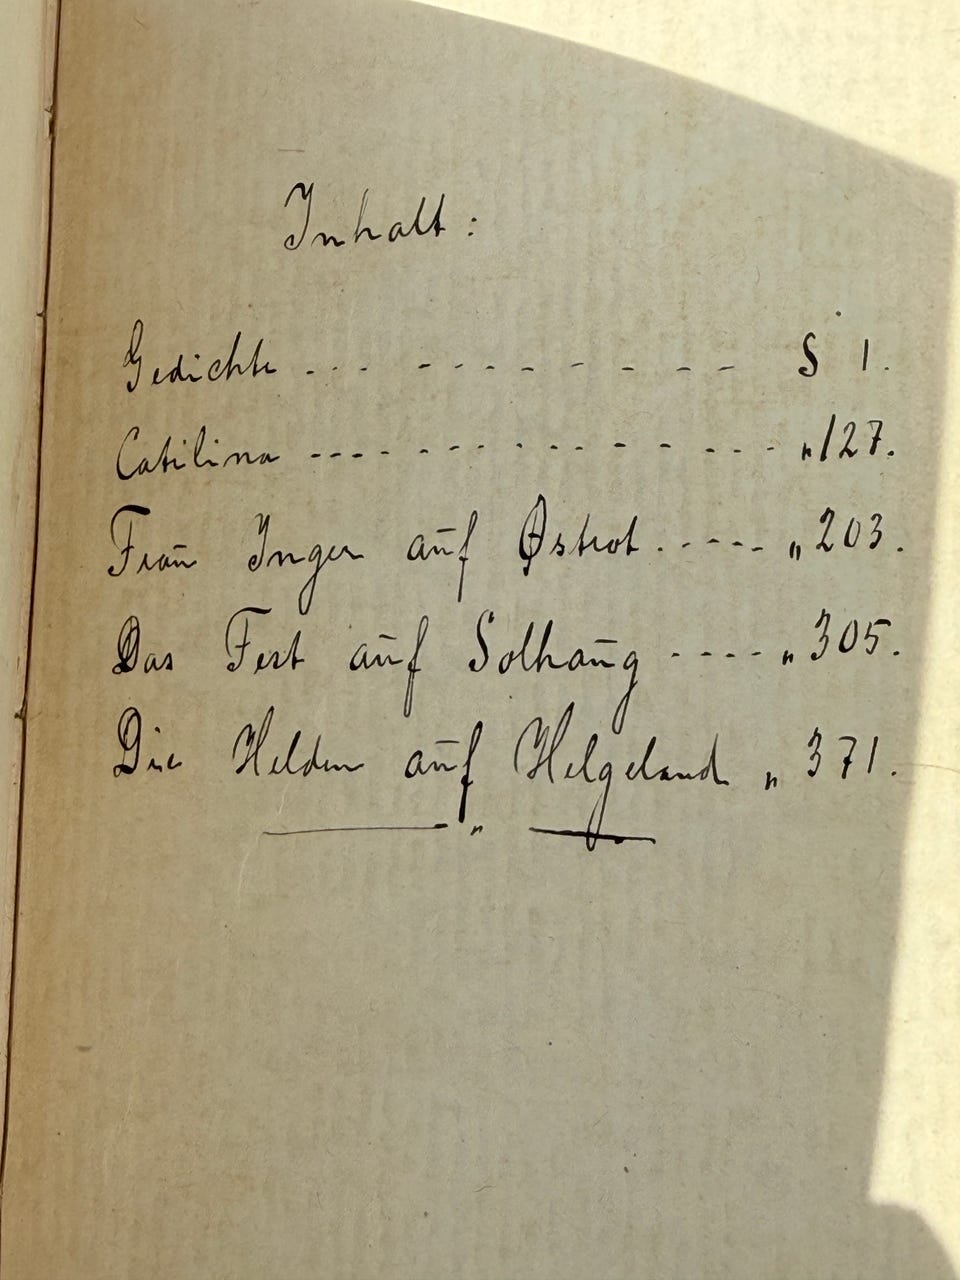 Inhalt:
Gedichte ... - - - - - - - - S 1.
Catilina ---- - - - - - - - - - - „ 127.
Frau Inger auf Østrot. - - - - - „ 203.
Das Fest auf Solhaug - - - - „ 305.
Die Helden auf Helgeland „ 371.